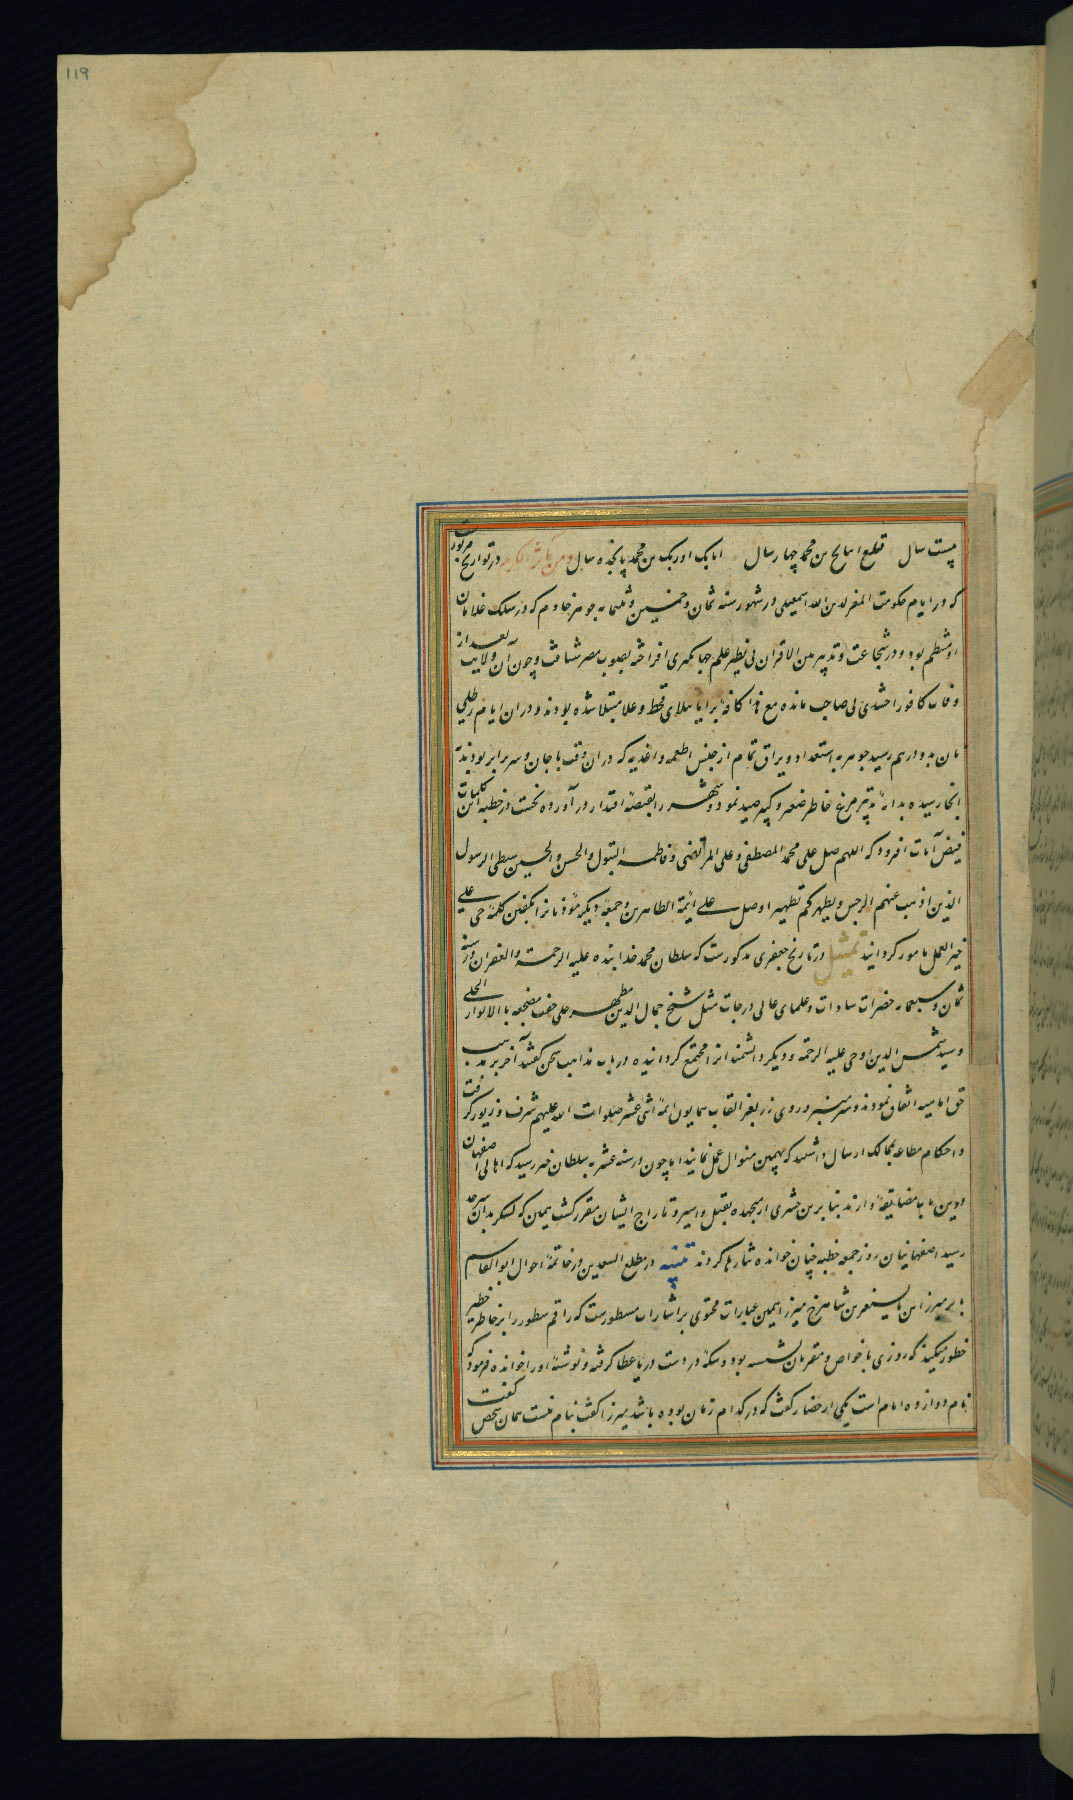 119
بیست سال قتلغ اینانج بن محمد چهار سال اتابک اوزبک بن محمد پانجده سال در تواریخ مزبورست
که در ایام حکومت المعز لدین الله اسمعیلی در شهور سنه ثمان و خمسین و ثلثمایه جوهر خادم که در سلک غلامان
او منتظم بود و در شجاعت و تدبیر بین الاقران بی نظیر علم جهانکیری افراخته بصوب مصر شتافت و چون آن ولایت بعد از
وفات کافور اخشیدی بی صاحب مانده مع هذا کافه برایا ببلای قحط و غلا مبتلا شده بودند و دران ایام رطلی
نان بدو درهم رسید جوهر به استعداد و یراق تمام از جنس اطعمه و اغذیه که دران وقت با جان و سر برابر بودند
انجا رسیده بدانه تدبیر مرغ خاطر صغیر و کبیر صید نمود و شهر را بقبضه اقتدار در آورده نخست در خطبه این کلمات
فیض آیات افزود که اللهم صل علی محمد المصطفی و علی المرتضی و فاطمه البتول و الحسن و الحسین سبطی الرسول
الذین اذهب عنهم الرجس و یطهرکم تطهیرا وصل علی ایمة الطاهرین و جمعه دیکر مؤذنانرا بکفتن کلمه حی علی
خیر العمل مامور کردانید تمثیل در تاریخ جعفری مذکورست که سلطان محمد خدابنده علیه الرحمة و الغفران در سنه
ثمان و سبعمایه حضرات سادات و علمای عالی درجات مثل شیخ جمال الدین مطهر حلی حف مضجعه بالانوار الحلی
و سید شمس الدین اوحی علیه الرحمه و دیکر دانشمندانرا مجتمع کردانیده در باب مذاهب سخن کفتند آخر بر مذهب
حق امامیه اتفاق نمودند و سر منبر و روی زر بعز القاب همایون ائمه اثنی عشر صلوات الله علیهم شرف و زیور کرفت
و احکام مطاعه بممالک ارسال داشتند که بهمین منوال عمل نمایند اما چون در سنه عشر به سلطان خبر رسید که اهالی اصفهان
درین باب مضایقه دارند بنابرین حشری ازینجهت بقتل و اسر و تاراج ایشان مقرر کشت همین که لشکر بدان سرحد
رسید اصفهانیان روز جمعه خطبه چنان خوانده نثارها کردند تنبیه در مطلع السعدین در خاتمه احوال ابو القاسم
بابر میرزا ابن بایسنغر بن شاهرخ میرزا همین عبارات محتوی بر اشارات مسطورست که راقم سطور را بخاطر خطیر
خطور میکند که روزی با خواص و مقربان نشسته بود و سکه در دست دریا عطا کرفته و نوشته او را خوانده فرمود که
نام دوازده امام است یکی از حضار کفت که در کدام زمان بوده باشد میرزا کفت بنام منست همان شخص کفت